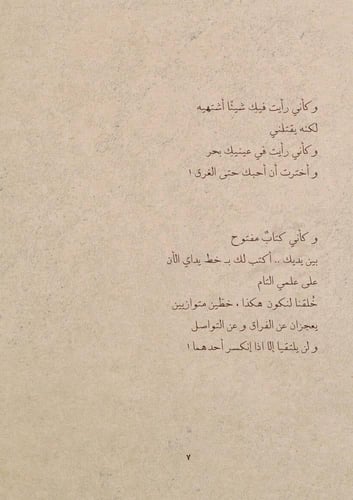 وكأني رأيت فيكِ شيئًا أشتهيه
لكنه يقتلني
وكأني رأيت في عينيكِ بحر
وأخترت أن أحبك حتى الغرق !
وكأني كتابٌ مفتوح
بين يديك .. أكتب لك بـ خط يداي الأن
على علمي التام
خُلقنا لنكون هكذا ، خطين متوازيين
يعجزان عن الفراق وعن التواصل
ولن يلتقيا إلا اذا إنكسر أحدهما !
٧